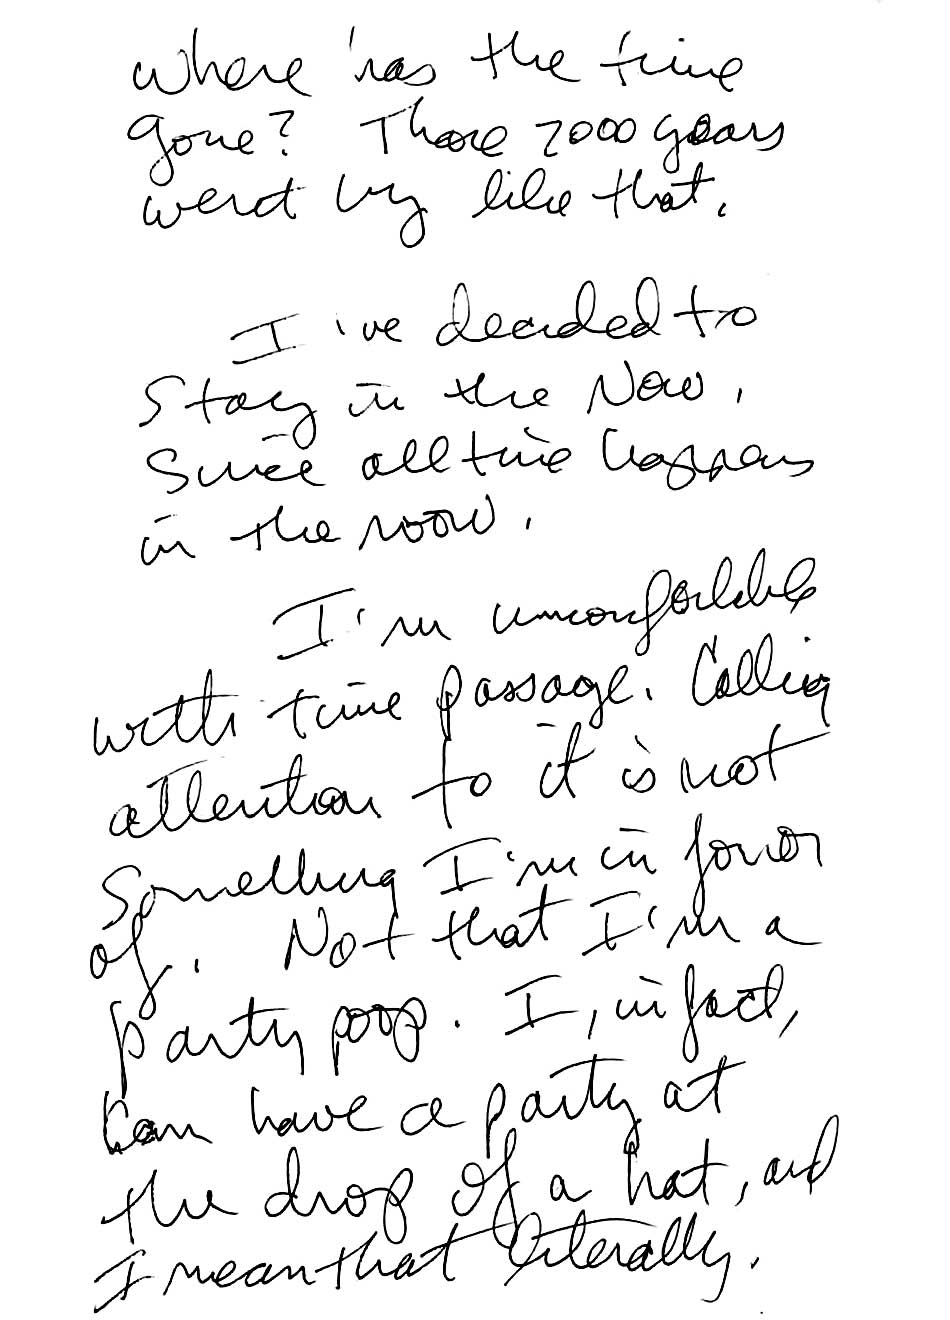 where has the time
gone? Those 2000 years
went by like that.
I've decided to
Stay in the Now,
Since all time happens
in the now.
I'm uncomfortable
with time passage. Calling
attention to it is not
Something I'm in favor
of. Not that I'm a
party poop. I, in fact,
can have a party at
the drop of a hat, and
I mean that literally.